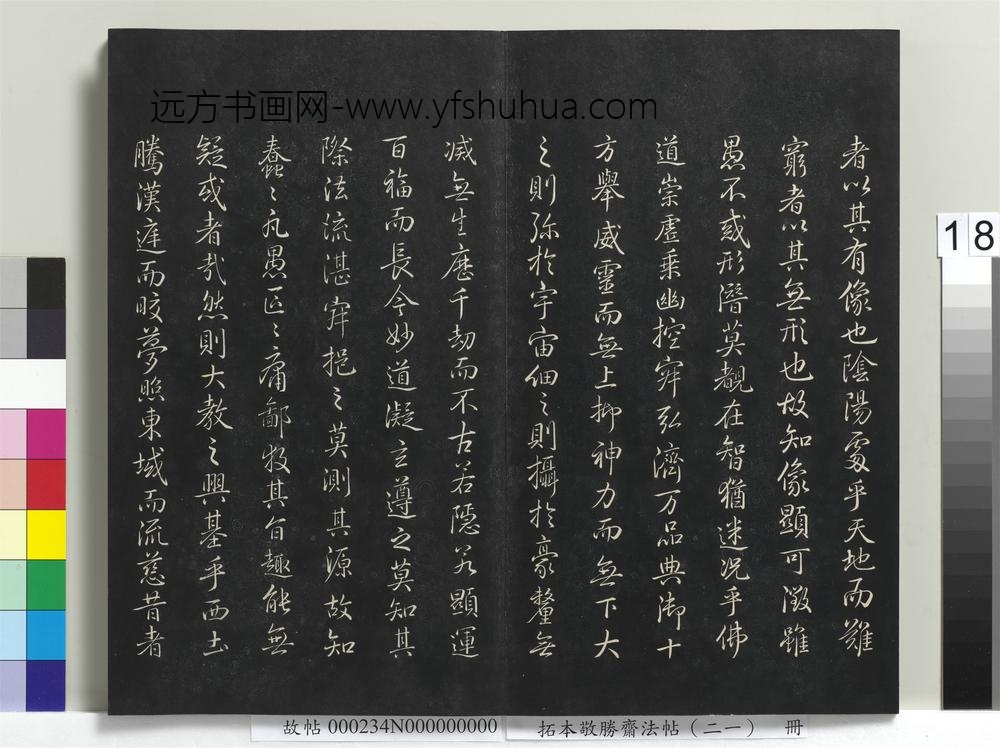 远方书画网-www.yfshuhua.com
者以其有像也陰陽處乎天地而難
窮者以其無形也故知像顯可徵雖
愚不惑形潛莫覩在智猶迷况乎佛
道崇虛乗幽控寂弘濟万品典御十
方舉威靈而無上抑神力而無下大
之則弥於宇宙細之則攝於豪釐無
滅無生歷千劫而不古若隱若顯運
百福而長今妙道凝玄遵之莫知其
際法流湛寂挹之莫測其源故知
蠢〻凢愚區〻庸鄙投其旨趣能無
疑或者哉然則大教之興基乎西土
騰漢庭而晈夢照東域而流慈昔者
18
故帖 000234N000000000
拓本敬勝齋法帖（二一） 冊